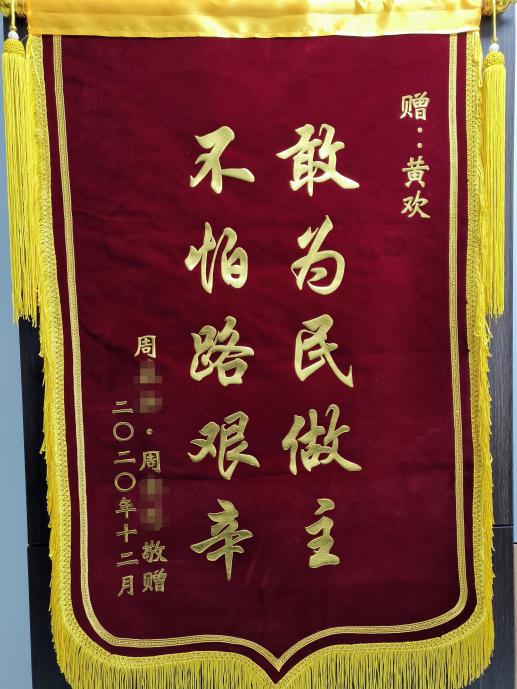 赠:黄欢
敢为民做主
不怕路艰辛
周 · 周 敬赠
二〇二〇年十二月